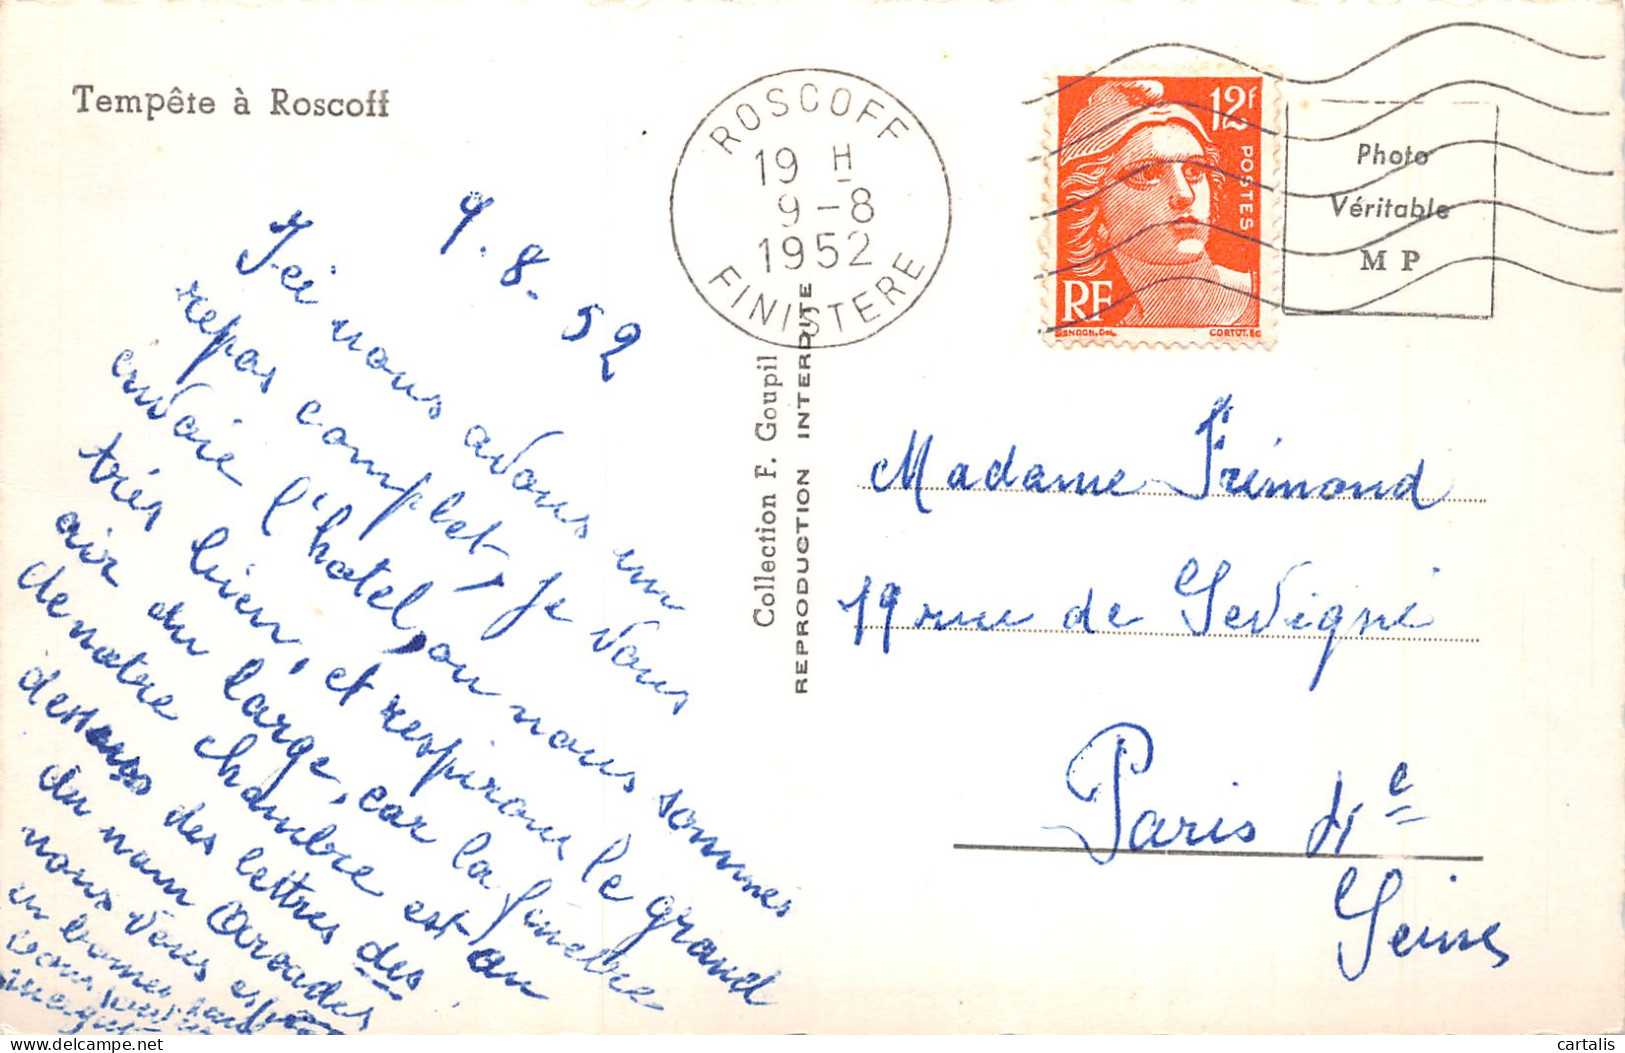 Tempête à Roscoff
ROSCOFF
19 H
9-8
1952
FINISTERE
12F
POSTES
RF
GANDON.Del.
CORTOT.Sc
Photo
Véritable
M P
Collection F. Goupil
REPRODUCTION INTERDITE
9.8-52
Ici nous avons un
repas complet, je vous
envoie l'hotel, ou nous sommes
très bien, et respirons le grand
air du large, car la fenêtre
de notre chambre est au
dessous des lettres des
du nom
nous vous
en bonne
Madame Frémond
19 rue de Sevigné
Paris 4e
Seine
cartalis
delcampe.net